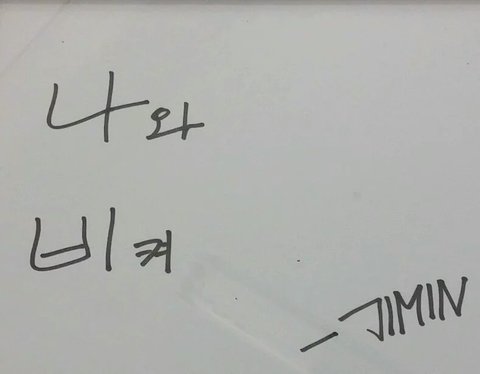 나와
비켜
- JIMIN